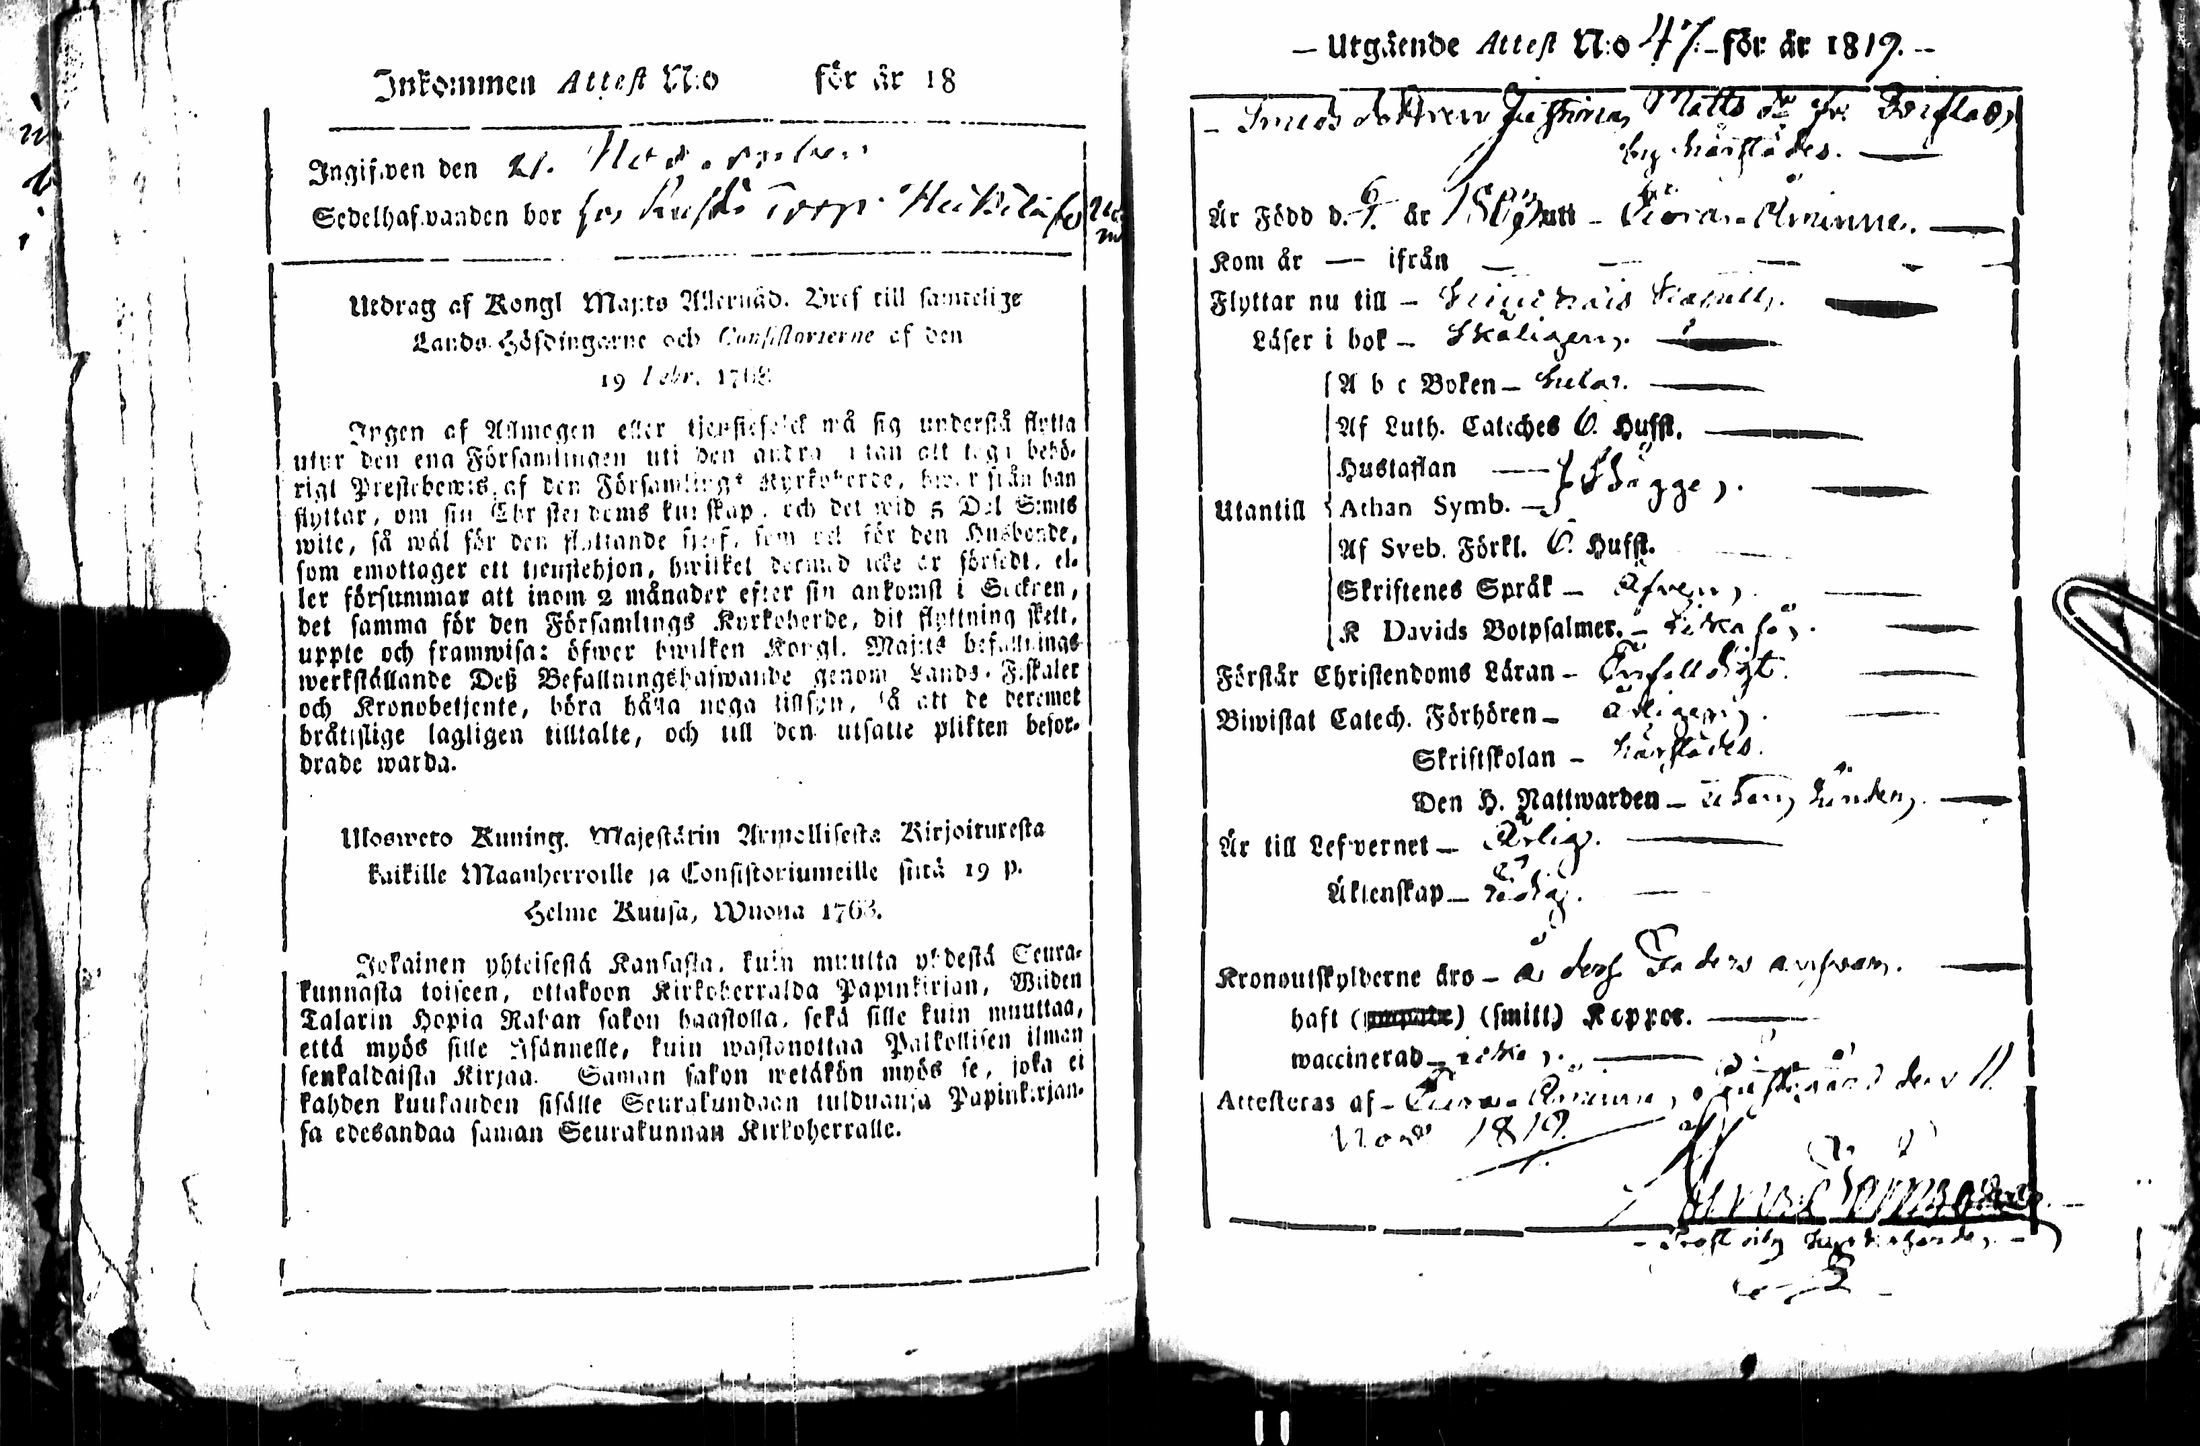 Inkommen Attest N:o för år 18
Ingifwen den 21. November
Sedelhafwanden bor hos
Utdrag af Kongl Maj:ts Allernåd. Bref till samtelige
Lands-Höfdingarne och Consistorierne af den
19 Febr. 1768
Ingen af Allmogen eller tjenstefolck må sig understå flytta
utur den ena Församlingen uti den andra utan att taga behö-
rigt Prestebewis af den Församlings Kyrkoherde, hwar ifrån han
flyttar, om sin Christendoms kunskap, och det wid 5 Dal S:mts
wite, så wäl för den flyttande sjelf, som ock för den Husbonde,
som emottager ett tjenstehjon, hwilket dermed icke är försedt, el-
ler försummar att inom 2 månader efter sin ankomst i Socknen,
det samma för den Församlings Kyrkoherde, dit flyttning skett,
uppte och framwisa: öfwer hwilken Kongl. Maj:ts befallnings
werkställande Deß Befallningshafwande genom Lands-Fiskaler
och Kronobetjente, böra hålla noga tillsyn, så att de deremot
bråttslige lagligen tilltalte, och till den utsatte plikten befor-
drade warda.
Uloswето Kuning. Majestärin Armollisesta Kirjoituxesta
kaikille Maanherroille ja Consistoriumeille siitä 19 p.
Helme Kuusa, Wuonna 1768.
Jokainen yhteisestä Kansasta, kuin muutta yhdestä Seura-
kunnasta toiseen, ottakoon Kirkoherralda Papinkirjan, Wiiden
Talarin Hopia Rahan sakon haastolla, sekä sille kuin muuttaa,
että myös sille Isännelle, kuin wastanottaa Palkollisen ilman
senkaldaista Kirjaa. Saman sakon wetäkön myös se, joka ei
kahden kuukauden sisälle Seurakundaan tulduansa Papinkirjan-
sa edesandaa saman Seurakunnan Kirkoherralle.
Utgående Attest N:o 47. för år 1819.
Smeds dottren Justina Matts dr fr.
by härstädes.
Är Född d. år 180 utt
Kom år — ifrån —
Flyttar nu till – Kapell,
Läser i bok – Skäligen,
A b c Boken – hela.
Af Luth. Cateches 6. Hufst.
Hustaflan
Utantill Athan Symb. — Bägge,
Af Sveb. Förkl. 6. Hufst.
Skriftenes Språk – Äfven,
K Davids Botpsalmer. – Lika så,
Förstår Christendoms Läran – Enfalldigt.
Biwistat Catech. Förhören – årligen,
Skriftskolan – härstädes.
Den H. Nattwarden – utan hinder,
Är till Lefvernet – Ärlig.
Äktenskap – Ledig.
Kronoutskylderne äro – å dess Faders answar,
haft ( ) (smitt) Koppor.
waccinerad – icke,
Attesteras af – den 11
Nov 1819.
Prost och Kyrkoherde,